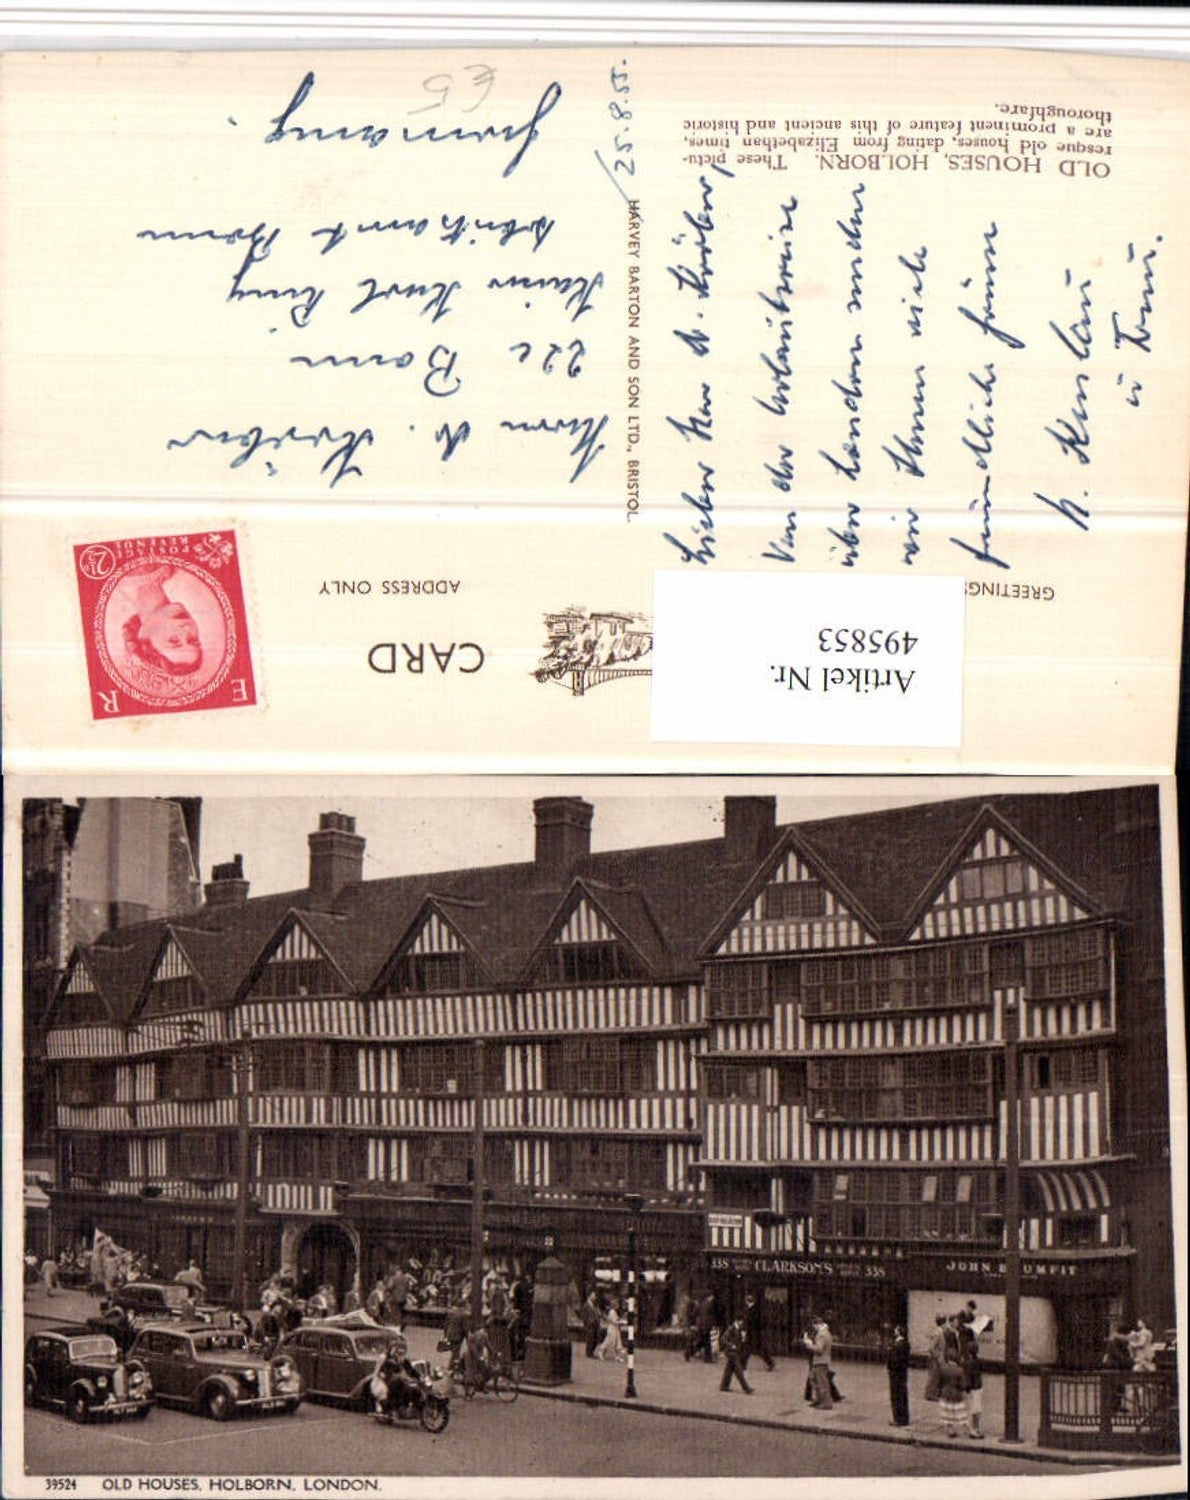 GREETINGS
CARD
ADDRESS ONLY
E R
POSTAGE
REVENUE
2½D
Artikel Nr.
495853
OLD HOUSES, HOLBORN. These pictu-
resque old houses, dating from Elizabethan times,
are a prominent feature of this ancient and historic
thoroughfare.
HARVEY BARTON AND SON LTD., BRISTOL.
25.8.55.
Lieber Herr Dr.
Von der
über London senden
wir Ihnen viele
freundliche Grüsse
Herrn Dr.
22c Bonn
Germany.
€5
338 CLARKSONS 338
JOHN BRUMFIT
39524 OLD HOUSES, HOLBORN, LONDON.